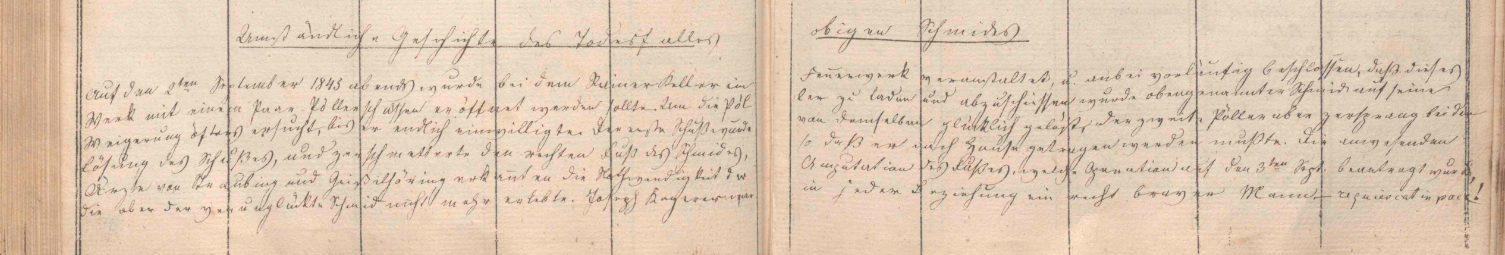 Umständliche Geschichte des Todesfalles obigen Schmides
Auf den 2ten September 1845 abends wurde bei dem Keller ein Feuerwerk veranstaltet, u. anbei vorläufig beschlossen, daß dieses
Werk mit einem Paar Pöllerschüssen eröffnet werden sollte. Um die Pöl ler zu laden und abzuschiessen wurde obengenannter Schmid auf seine
Weigerung öfters ersucht, bis er endlich einwilligte. Der erste Schuß wurde von demselben glücklich gelößt, der zweite Pöller aber zersprang bei der
Lösung des Schußes, und zerschmetterte den rechten Fuß des Schmides, so daß er nach Hause getragen werden mußte. Die anwesenden
Ärzte von Straubing und Geißelhöring erkannten die Nothwendigkeit der Amputation des Fußes, welche Operation auf den 3ten Sept. beantragt wurde,
die aber der verunglückte Schmid nicht mehr erlebte. Joseph Kagerer war in jeder Beziehung ein recht braver Mann – requiescat in pace!